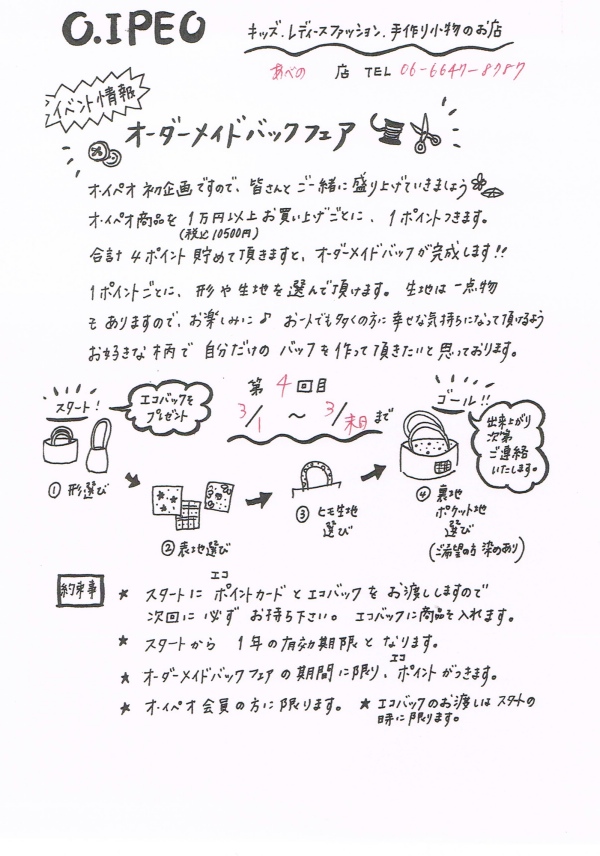 O.IPEO
キッズ.レディースファッション.手作り小物のお店
あべの 店 TEL 06-6647-8787
イベント情報
オーダーメイドバックフェア
オ.イペオ初企画ですので、皆さんとご一緒に盛り上げていきましょう
オ.イペオ商品を1万円以上お買い上げごとに、1ポイントつきます。
(税込10500円)
合計4ポイント貯めて頂きますと、オーダーメイドバックが完成します!!
1ポイントごとに、形や生地を選んで頂けます。生地は一点物
もありますので、お楽しみに♪ お一人でも多くの方に幸せな気持ちになって頂けるよう
お好きな柄で自分だけのバックを作って頂きたいと思っております。
スタート!
エコバックを
プレゼント
第4回目
3/1 〜 3/末日まで
ゴール!!
出来上がり
次第
ご連絡
いたします。
① 形選び
② 表地選び
③ ヒモ生地
選び
④ 裏地
ポケット地
選び
(ご希望の方 染のあり)
約束事
★ スタートに エコポイントカードとエコバックをお渡ししますので
次回に必ずお持ち下さい。エコバックに商品を入れます。
★ スタートから 1年の有効期限となります。
★ オーダーメイドバックフェアの期間に限り、エコポイントがつきます。
★ オ.イペオ会員の方に限ります。 ★ エコバックのお渡しはスタートの
時に限ります。